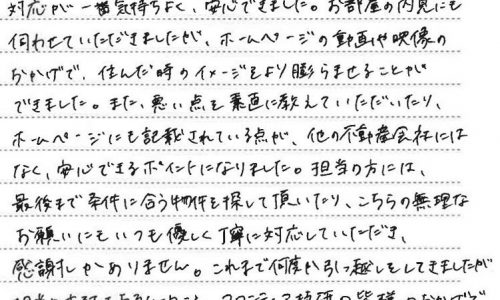 対応が一番気持ちよく、安心できました。お部屋の内見にも
伺わせていただきましたが、ホームページの動画や映像の
おかげで、住んだ時のイメージをより膨らませることが
できました。また、悪い点を素直に教えていただいたり、
ホームページにも記載されている点が、他の不動産会社には
なく、安心できるポイントになりました。担当の方には、
最後まで条件に合う物件を探して頂いたり、こちらの無理な
お願いにもいつも優しく丁寧に対応していただき、
感謝しかありません。これまで何度か引っ越しをしてきましたが